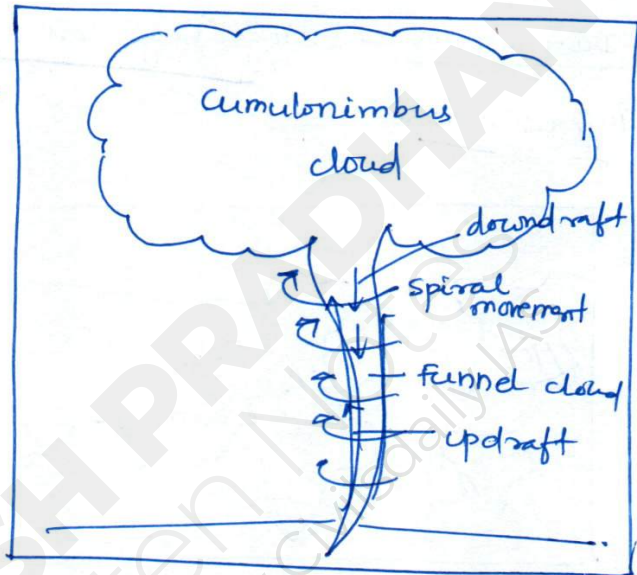 Cumulonimbus
cloud
downdraft
spiral
movement
Funnel cloud
updraft
SH PRADHAN
ten Notes
civilsdaily IAS